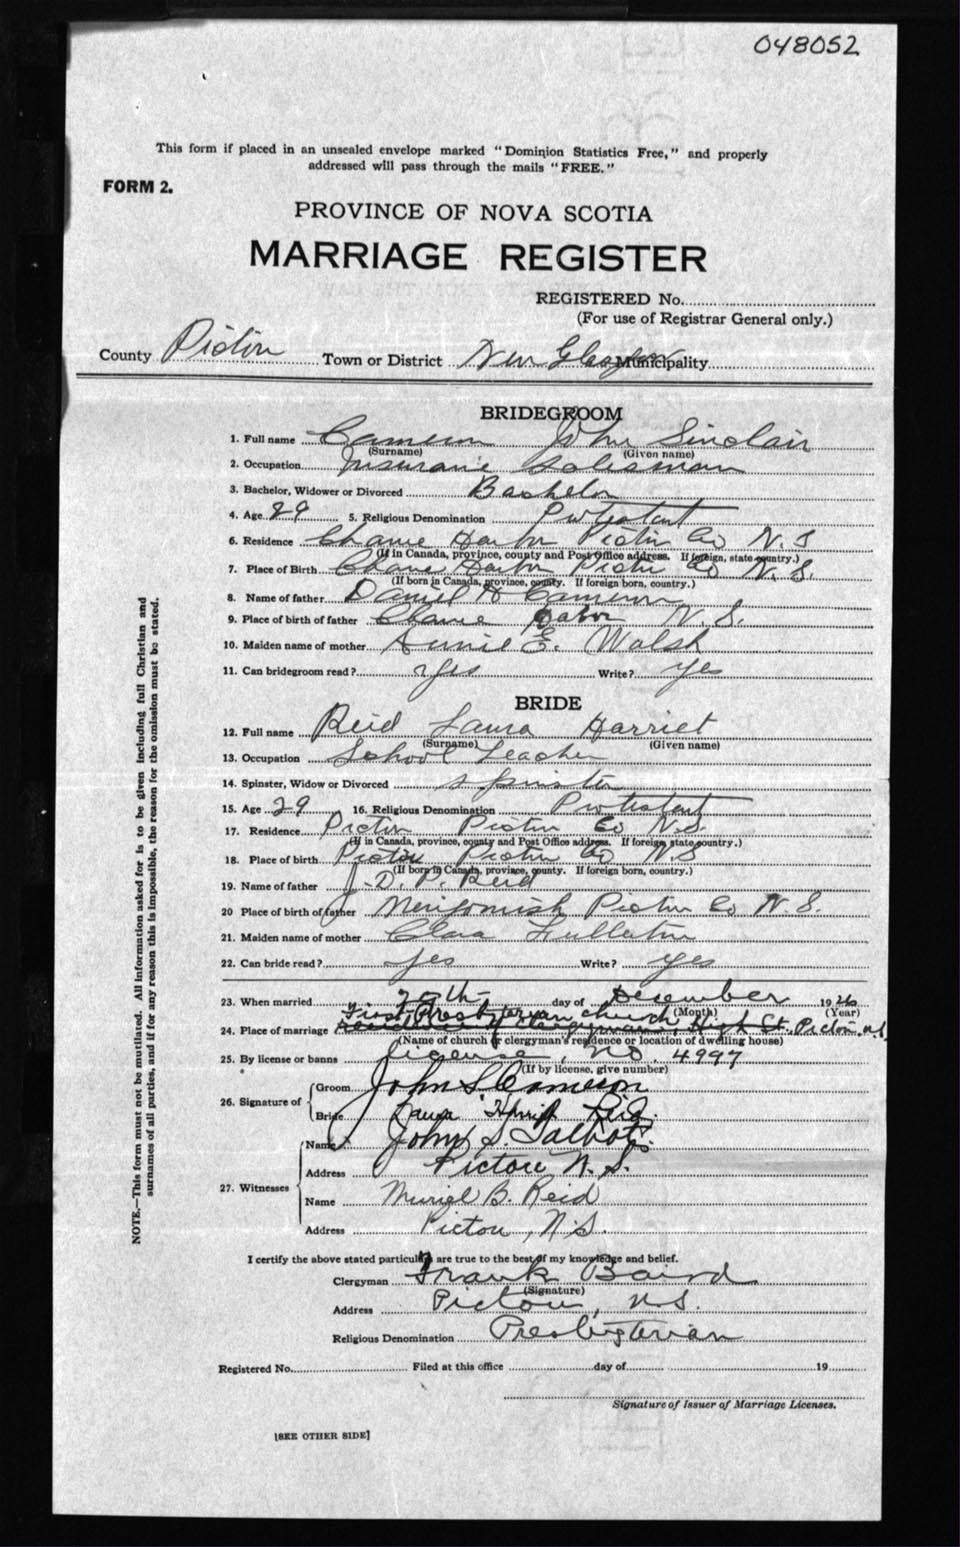 048052
This form if placed in an unsealed envelope marked "Dominion Statistics Free," and properly
addressed will pass through the mails "FREE."
FORM 2.
PROVINCE OF NOVA SCOTIA
MARRIAGE REGISTER
REGISTERED No.
(For use of Registrar General only.)
County Pictou Town or District New Glasgow Municipality
BRIDEGROOM
1. Full name Cameron John Sinclair
(Surname) (Given name)
2. Occupation Insurance Salesman
3. Bachelor, Widower or Divorced Bachelor
4. Age 29 5. Religious Denomination Protestant
6. Residence Chance Harbor Pictou Co N.S
(If in Canada, province, county and Post Office address. If foreign, state country.)
7. Place of Birth Chance Harbor Pictou Co N.S.
(If born in Canada, province, county. If foreign born, country.)
8. Name of father Daniel H Cameron
9. Place of birth of father Chance Habor N.S.
10. Maiden name of mother Annie E. Walsh
11. Can bridegroom read? Yes Write? yes
BRIDE
12. Full name Reid Laura Harriet
(Surname) (Given name)
13. Occupation School Teacher
14. Spinster, Widow or Divorced spinster
15. Age 29 16. Religious Denomination Protestant
17. Residence Pictou Pictou Co N.S
(If in Canada, province, county and Post Office address. If foreign, state country.)
18. Place of birth Pictou Pictou Co N.S
(If born in Canada, province, county. If foreign born, country.)
19. Name of father J. D. P. Reid
20 Place of birth of father Merigomish Pictou Co N.S.
21. Maiden name of mother Clara Fullerton
22. Can bride read? yes Write? yes
23. When married 25th day of December 1926
(Month) (Year)
First Presbyterian church
24. Place of marriage residence of clergyman, High St. Pictou N.S
(Name of church or clergyman's residence or location of dwelling house)
25. By license or banns license, No. 4997
(If by license, give number)
26. Signature of Groom John S Cameron
Bride Laura Harriet Reid.
27. Witnesses Name John S. Talbot.
Address Pictou N.S.
Name Muriel B. Reid
Address Pictou, N.S.
I certify the above stated particulars are true to the best of my knowledge and belief.
Clergyman Frank Baird
(Signature)
Address Pictou, N.S.
Religious Denomination Presbyterian
Registered No. Filed at this office day of 19
Signature of Issuer of Marriage Licenses.
[SEE OTHER SIDE]
NOTE.—This form must not be mutilated. All information asked for is to be given including full Christian and
surnames of all parties, and if for any reason this is impossible, the reason for the omission must be stated.